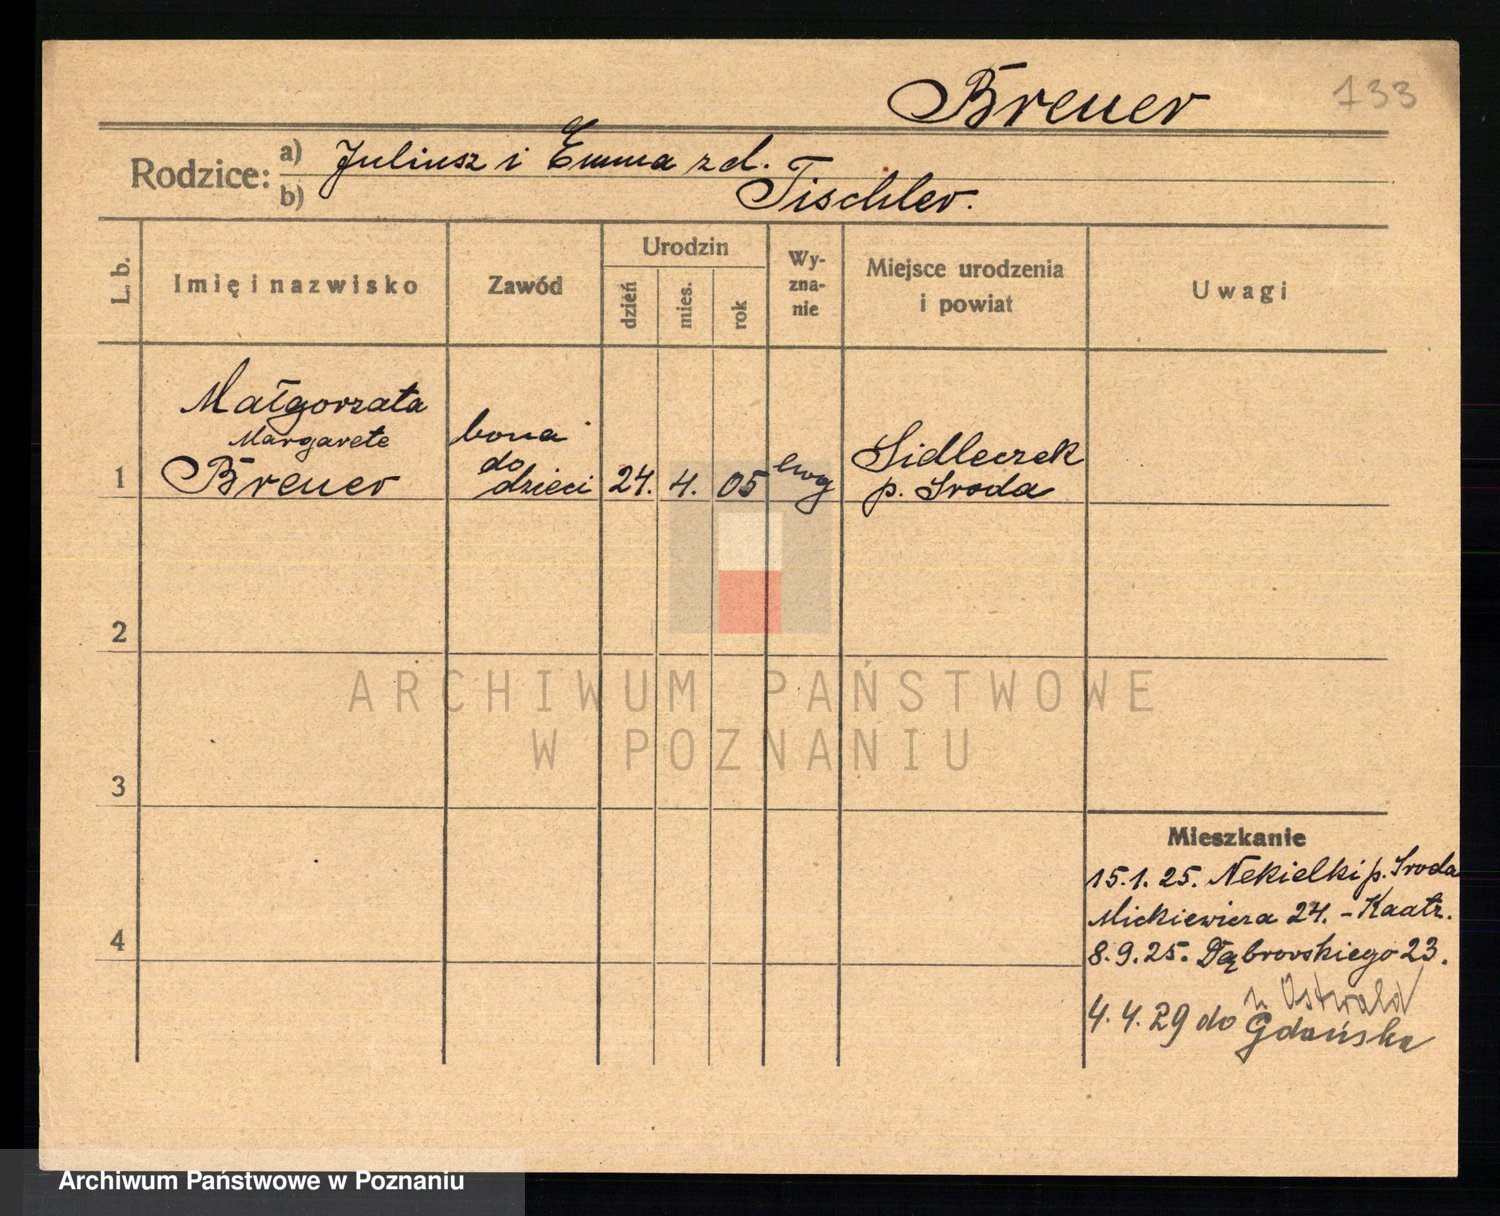 Breuer 133
Rodzice: a) Juliusz i Emma z d.
b) Tischler.
L. b. Imię i nazwisko Zawód Urodzin dzień mies. rok Wy-zna-nie Miejsce urodzenia i powiat Uwagi
Małgorzata
Margarete
1 Breuer bona do dzieci 24. 4. 05 ewg Sidleczek p. Sroda
2
3
4
Mieszkanie
15.1.25. Nekielki p. Sroda
Mickiewicza 24. - Kaatz.
8.9.25. Dąbrowskiego 23.
Ostwald
4.4.29 do Gdańska
ARCHIWUM PAŃSTWOWE
W POZNANIU
Archiwum Państwowe w Poznaniu